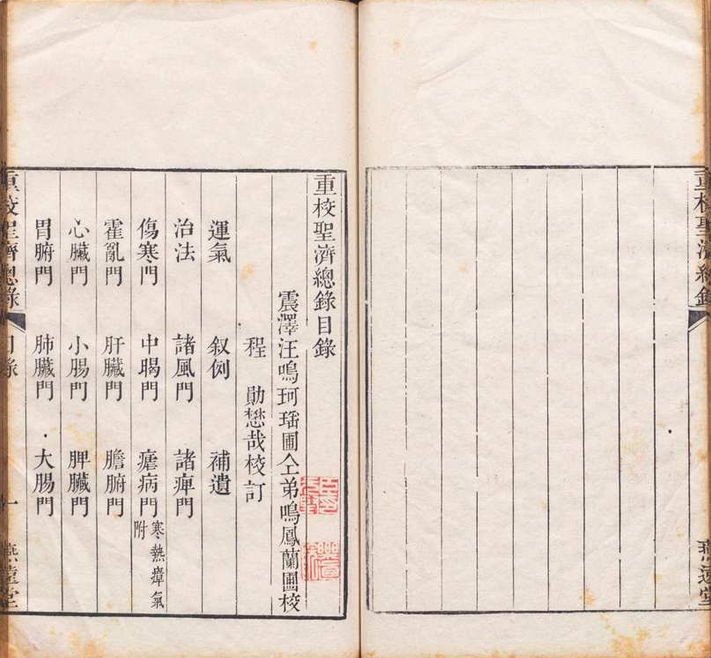 重校聖濟總錄目錄
震澤汪鳴珂瑶圃仝弟鳴鳳蘭圃校
程 勛懋哉校訂
運氣 叙例 補遺
治法 諸風門 諸痺門
傷寒門 中暍門 瘧病門 寒熱瘴氣附
霍亂門 肝臟門 膽腑門
心臟門 小腸門 脾臟門
胃腑門 肺臟門 大腸門
重校聖濟總錄 目錄 一 燕遠堂
重校聖濟總錄 燕遠堂